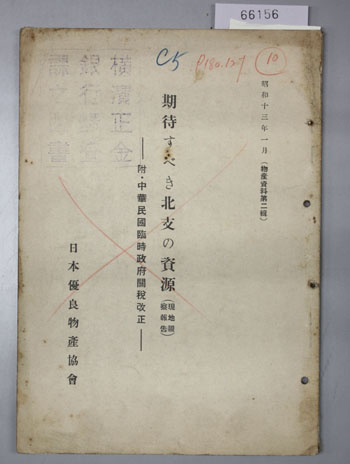 66156
C5
10
昭和十三年一月(物産資料第二輯)
期待すべき北支の資源(現地視察報告)
——附・中華民國臨時政府關稅改正——
日本優良物産協會
横濱正金
銀行